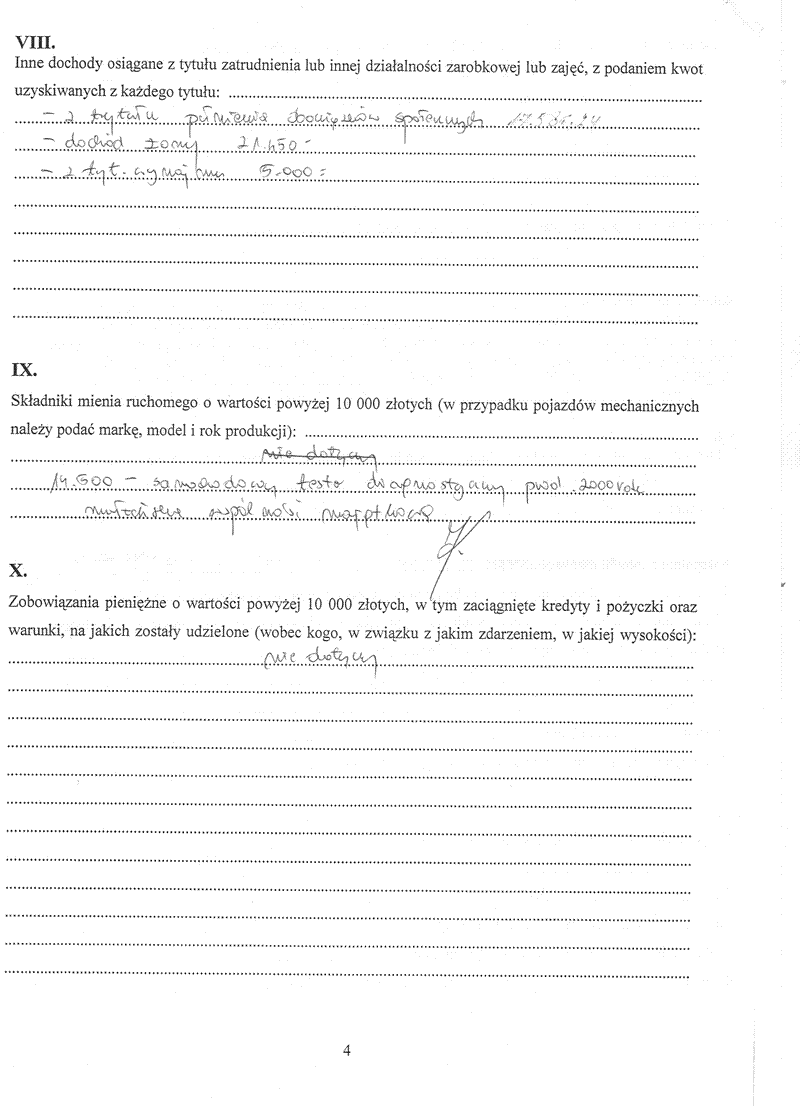 VIII.
Inne dochody osiągane z tytułu zatrudnienia lub innej działalności zarobkowej lub zajęć, z podaniem kwot
uzyskiwanych z każdego tytułu:
- z tytułu pełnienia obowiązków społecznych
- dochód żony 21.450 -
- z tyt. wynajmu 5.000 =
IX.
Składniki mienia ruchomego o wartości powyżej 10 000 złotych (w przypadku pojazdów mechanicznych
należy podać markę, model i rok produkcji):
nie dotyczy
14.600 - samochodowy tester diagnostyczny prod. 2000 rok
współności
X.
Zobowiązania pieniężne o wartości powyżej 10 000 złotych, w tym zaciągnięte kredyty i pożyczki oraz
warunki, na jakich zostały udzielone (wobec kogo, w związku z jakim zdarzeniem, w jakiej wysokości):
nie dotyczy
4